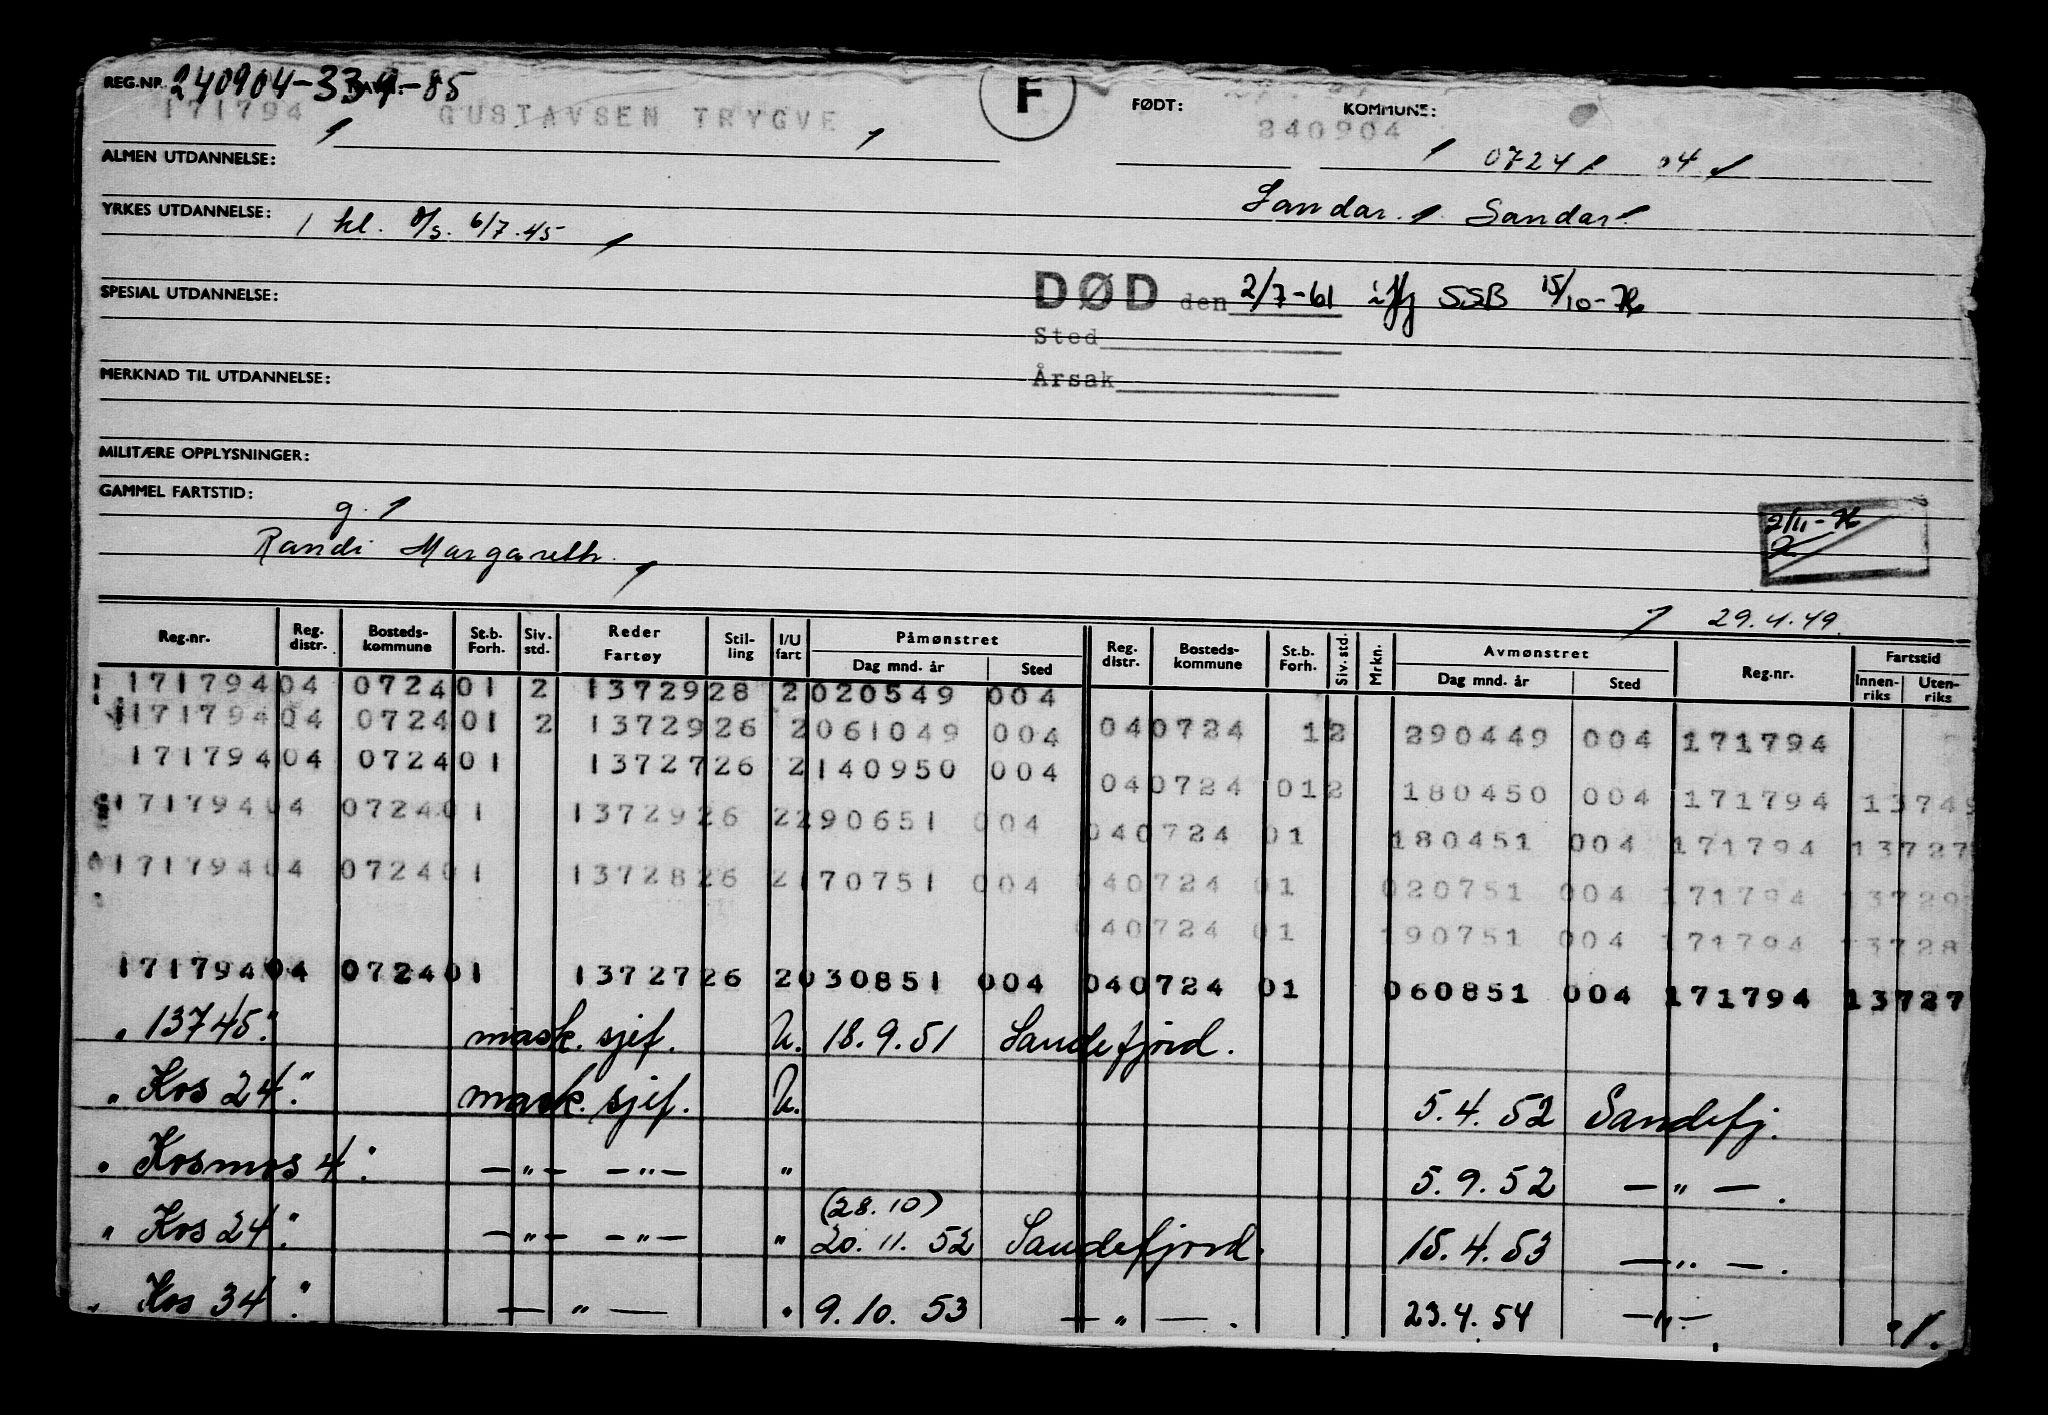 REG.NR. 240904-33 -85 F FØDT: KOMMUNE:
171794 GUSTAVSEN TRYGVE 240904
ALMEN UTDANNELSE: 0724 04
Sandar. Sandar.
YRKES UTDANNELSE: 1 kl. 6/7.45
DØD den 2/7-61 SSB 15/10-76
SPESIAL UTDANNELSE:
Sted
MERKNAD TIL UTDANNELSE:
Årsak
MILITÆRE OPPLYSNINGER:
GAMMEL FARTSTID:
g. 1
2/11-76
Randi Margareth.
29.4.49.
Reg.nr. Reg. distr. Bosteds-kommune St.b. Forh. Siv. std. Reder Fartøy Stil-ling I/U fart Påmønstret Dag mnd. år Sted Reg. distr. Bosteds-kommune St.b. Forh. Siv. std. Mrkn. Avmønstret Dag mnd. år Sted Reg.nr. Fartstid Innen-riks Uten-riks
171794 04 0724 01 2 13729 28 2 020549 004
171794 04 0724 01 2 13729 26 2 061049 004 04 0724 1 2 290449 004 171794
171794 04 0724 01 13727 26 2 140950 004 04 0724 01 2 180450 004 171794 13749
171794 04 0724 01 13729 26 2 290651 004 04 0724 01 180451 004 171794 13727
171794 04 0724 01 13728 26 2 170751 004 04 0724 01 020751 004 171794 13729
04 0724 01 190751 004 171794 13728
171794 04 0724 01 13727 26 2 030851 004 04 0724 01 060851 004 171794 13727
„ 13745." mask. sjef. U. 18.9.51 Sandefjord.
„ Kos 24." mask. sjef. U. 5.4.52 Sandefj.
„ Kosmos 4." —"— —"— " 5.9.52 —"—.
(28.10)
„ Kos 24." —"— —"— " 20.11.52 Sandefjord. 15.4.53 —"—.
„ Kos 34." —"— " 9.10.53 —"—. 23.4.54 —"— 1.